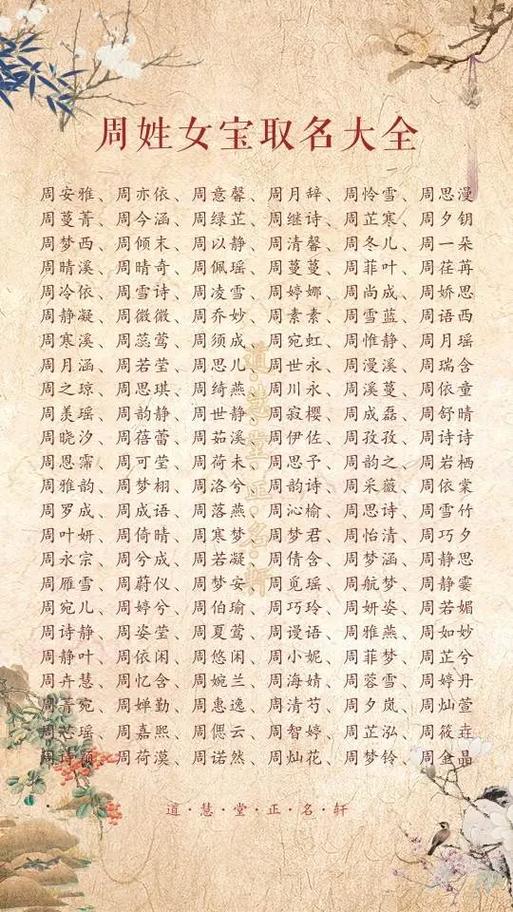 周姓女宝取名大全
周安雅、周亦依、周意馨、周月辞、周怜雪、周思漫
周蔓菁、周今涵、周绿芷、周继诗、周芷寒、周夕钥
周梦西、周倾末、周以静、周清馨、周冬儿、周一朵
周晴溪、周晴奇、周佩瑶、周蔓蔓、周菲叶、周荏苒
周冷依、周雪诗、周凌雪、周婷娜、周尚成、周娇思
周静凝、周微微、周乔妙、周素素、周雪蓝、周语西
周寒溪、周蕊莺、周须成、周宛虹、周惟静、周月瑶
周月涵、周若莹、周思儿、周世永、周漫溪、周瑞含
周之琼、周思琪、周绮燕、周川永、周溪蔓、周依童
周羡瑶、周韵静、周世静、周寂樱、周成磊、周舒晴
周晓汐、周蓓蕾、周茹溪、周伊佐、周孜孜、周诗诗
周恩霈、周可莹、周荷未、周思予、周韵之、周岩栖
周雅韵、周梦栩、周洛兮、周韵诗、周采薇、周依棠
周罗成、周成语、周落燕、周沁榆、周思诗、周雪竹
周叶妍、周倚晴、周寒梦、周梦君、周怡清、周巧夕
周永宗、周兮成、周若凝、周倩含、周梦涵、周静思
周雁雪、周蔚仪、周梦安、周觅瑶、周航梦、周静霎
周宛儿、周婷兮、周伯瑜、周巧玲、周妍姿、周若媚
周诗静、周姿莹、周夏莺、周谩语、周雅燕、周如妙
周静叶、周依闲、周悠闲、周小妮、周菲梦、周芷兮
周卉慧、周忆含、周婉兰、周海婧、周蓉雪、周婷丹
周菁宛、周婵勤、周惠逸、周清芍、周夕岚、周灿萱
周瑶、周嘉熙、周偲云、周智婷、周芷泓、周筱垚
周诗、周荷漠、周诺然、周灿花、周梦铃、周金晶
道·慧·堂·正·名·轩
道慧堂正名轩